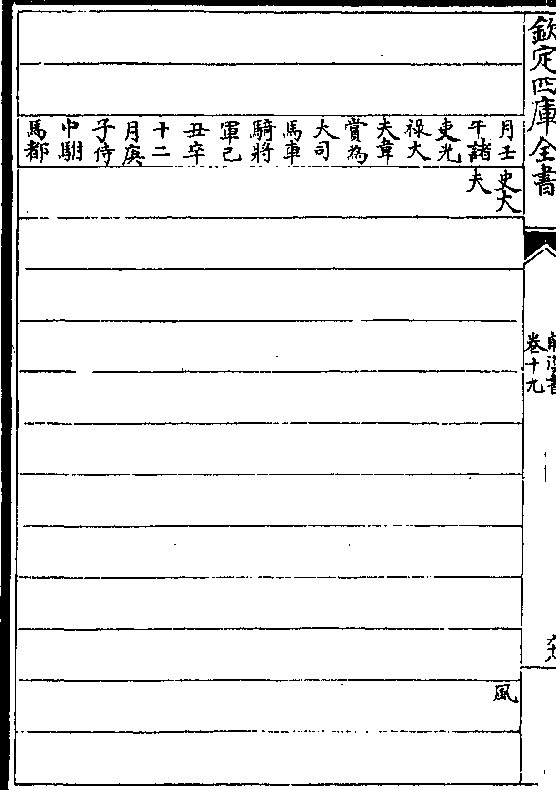 欽定四庫全書
前漢書
卷十九
月壬
午諸
吏光
祿大
夫韋
賞為
大司
馬車
騎將
軍己
丑卒
十二
月庚
子侍
中駙
馬都
史大
夫
風